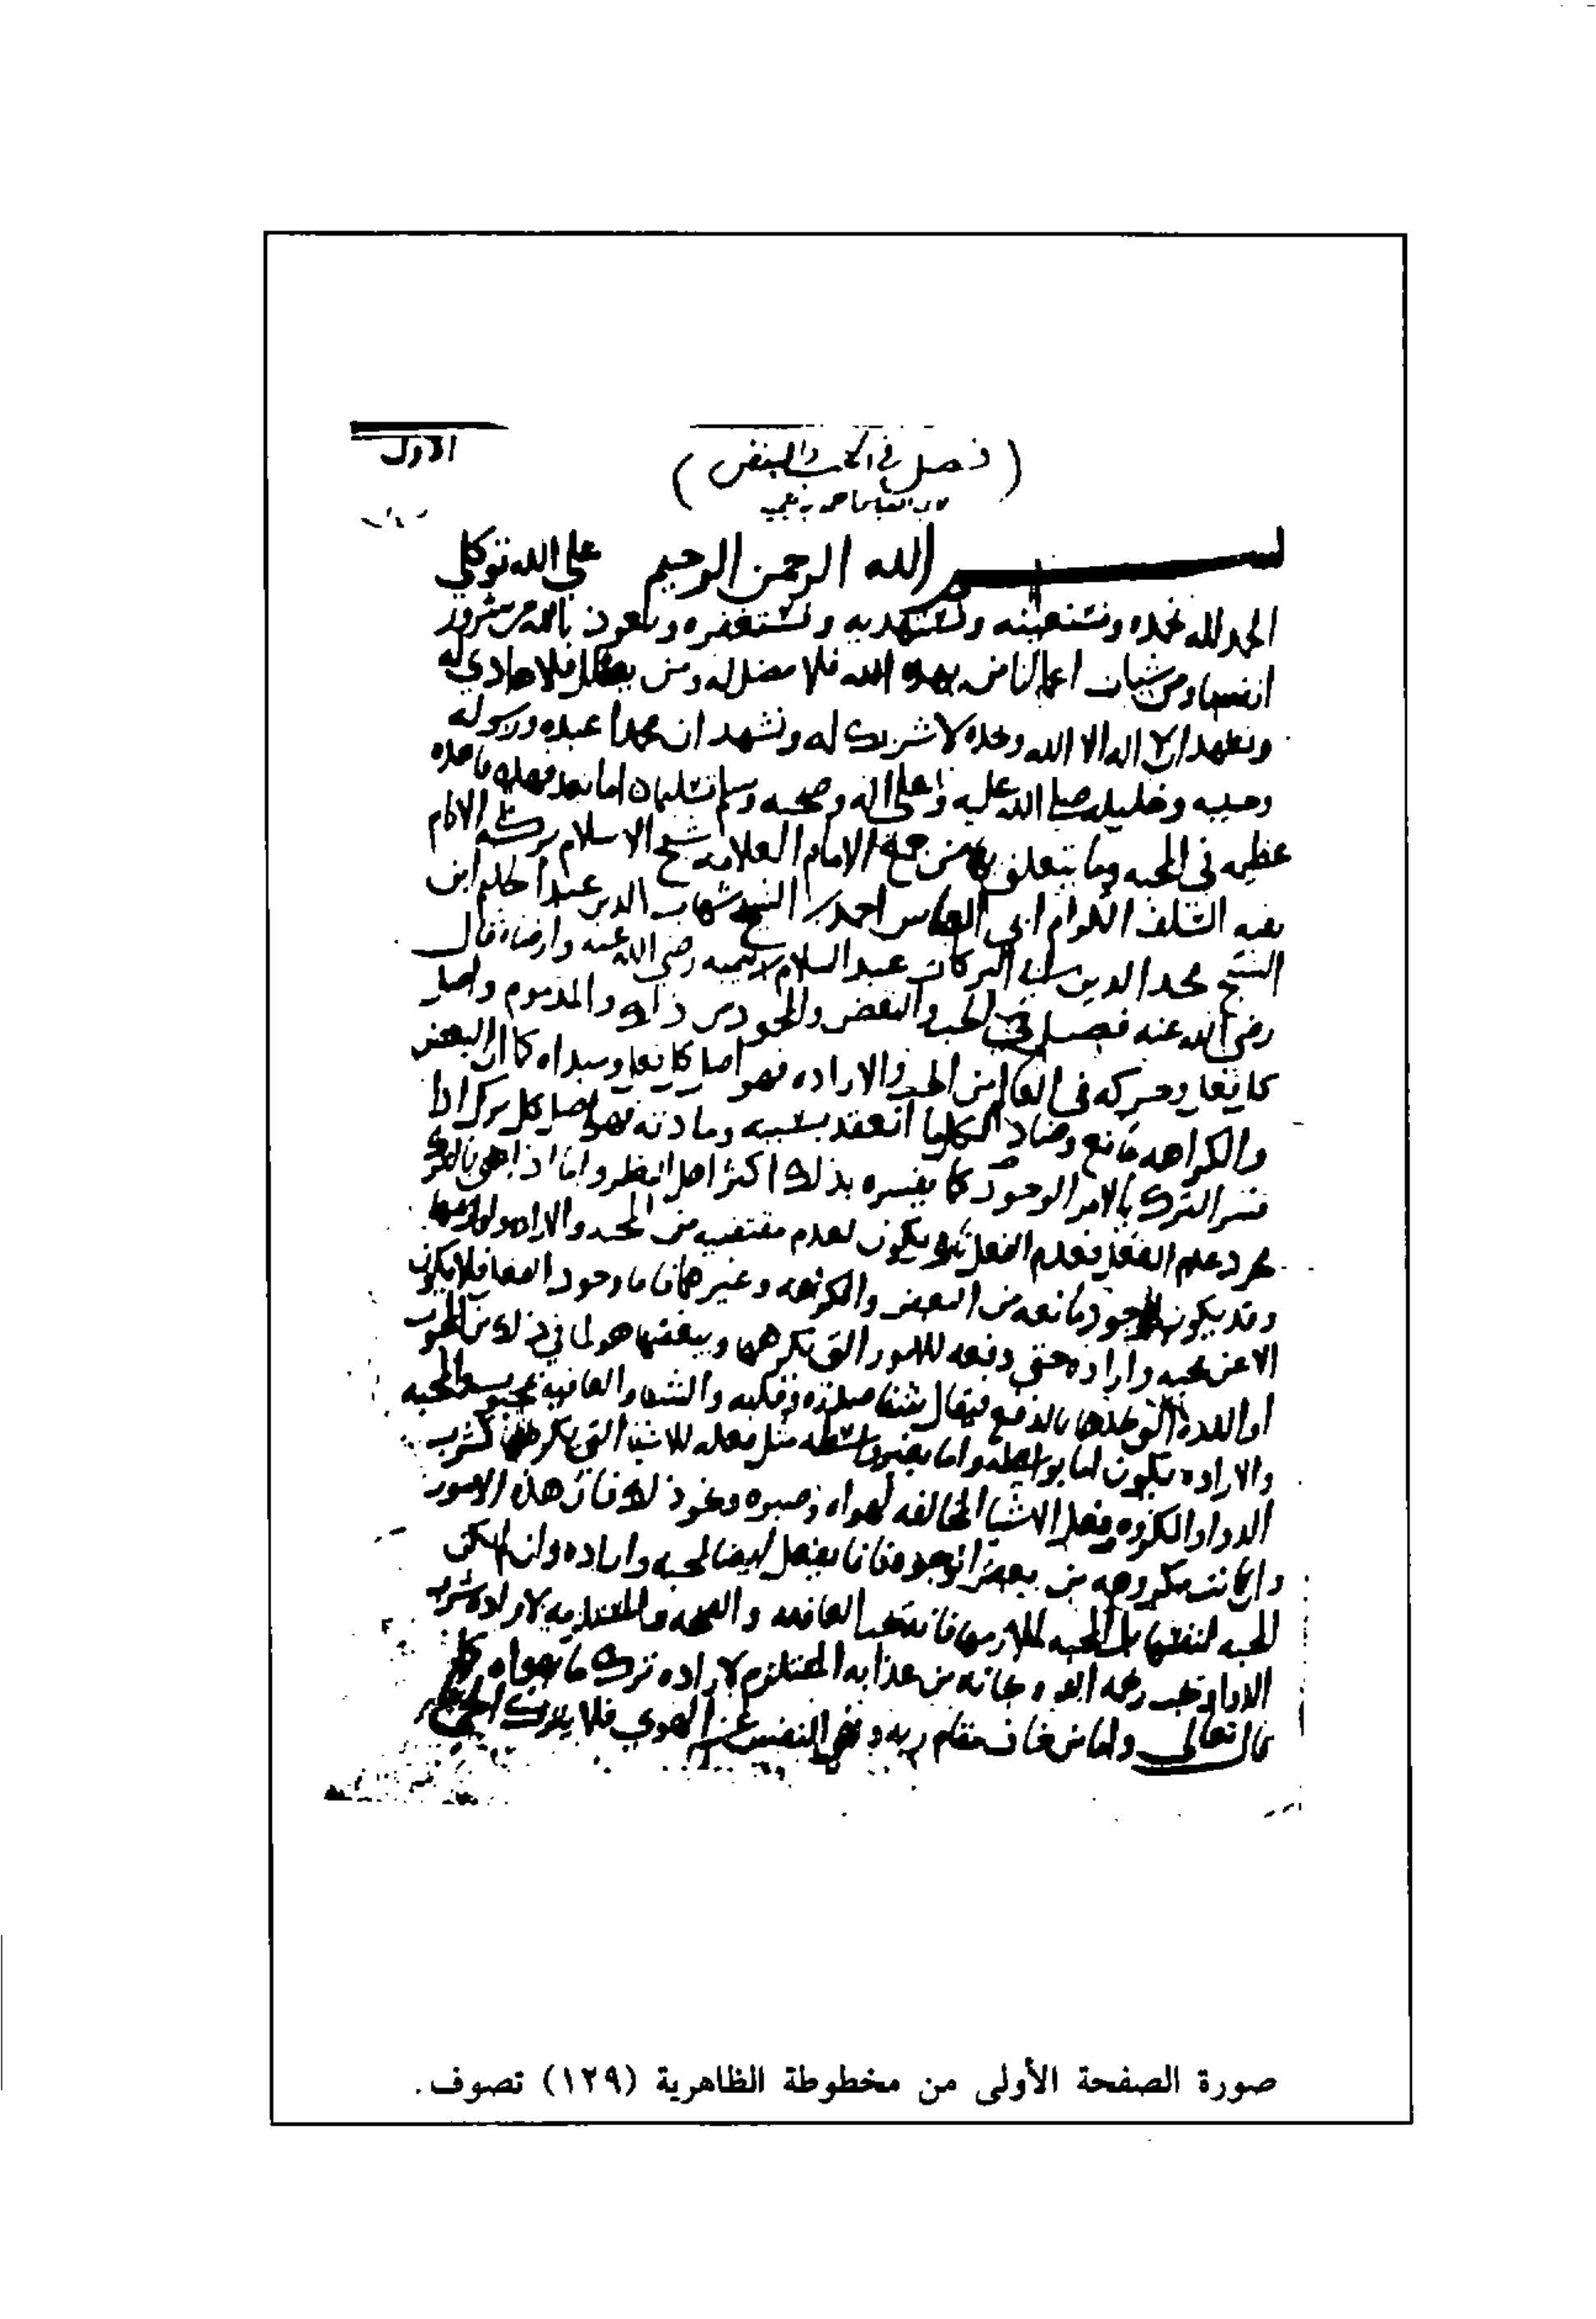 الاول
(فصل في الحب والبغض)
بسم الله الرحمن الرحيم على الله توكلي
الحمد لله نحمده ونستعينه ونستهديه ونستغفره ونعوذ بالله من شرور
انفسنا ومن سيات اعمالنا من يهده الله فلا مضل له ومن يضلل فلا هادي له
ونشهد ان لا اله الا الله وحده لا شريك له ونشهد ان محمدا عبده ورسوله
وحبيبه وخليله صلى الله عليه وعلى اله وصحبه وسلم تسليما اما بعد فهذه قاعده
عظيمه في المحبه وما يتعلق بها من جمع الامام العلامه شيخ الاسلام بركة الانام
بقيه السلف الكرام ابي العباس احمد بن الشيخ شهاب الدين عبد الحليم ابن
الشيخ مجد الدين ابي البركات عبد السلام بن تيميه رضي الله عنه وارضاه قال
رضي الله عنه فصل في الحب والبغض والمحمود من ذلك والمذموم واصل
كل فعل وحركه في العالم من الحب والاراده فهو اصل كل فعل ومبداه كما ان البغض
والكراهه مانع وصاد لكل ما انعقد بسببه ومادته فهو اصل كل ترك اذا
فسر الترك بالامر الوجودي كما يفسره بذلك اكثر اهل النظر واما اذا
مجرد عدم الفعل فعدم الفعل تاره يكون لعدم مقتضيه من المحبه والاراده ولوازمها
وقد يكون لوجود مانعه من البغض والكراهه وغيرهما فاما وجود الفعل فلا يكون
الا عن محبه واراده حتى دفعه للامور التي يكرهها ويبغضها هو لما في ذلك من المحبوب
او اللذه يجدها بالدفع فيقال شفا صدره وقلبه والشفا والعافيه محبوب والمحبه
والاراده تكون اما بواسطه واما بغير واسطه مثل فعله للاشيا التي يكرهها كشرب
الدوا والكروه وفعل الاشيا المخالفه لهواه وصبره ونحو ذلك فان هذه الامور
وان كانت مكروهه من بعض الوجوه فانما يفعل ايضا لمحبه واراده وان لم تكن
المحبه لنفسها بل المحبه لملازمها فانه يحب العافيه والصحه المستلزمه لاراده شرب
الدوا ويحب رحمه الله ونجاته من عذابه المستلزم لاراده ترك ما يهواه كما
قال تعالى واما من خاف مقام ربه ونهى النفس عن الهوى فلا يترك الحي
صورة الصفحة الأولى من مخطوطة الظاهرية (١٢٩) تصوف.